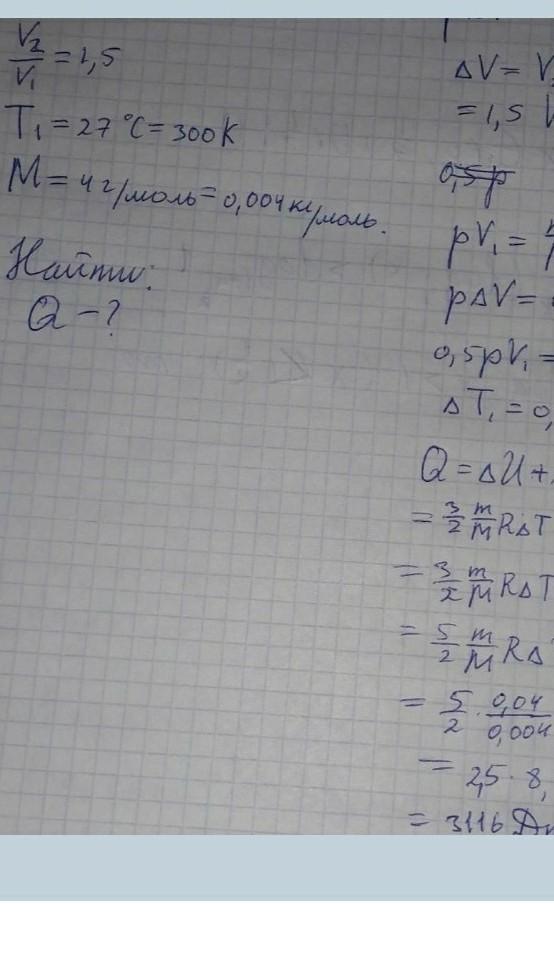 V₂/V₁ = 1,5
T₁ = 27 °C = 300K
M = 4 г/моль = 0,004 кг/моль.
Найти:
Q - ?
ΔV = V₂
= 1,5 V
0,5p
pV₁ =
pΔV =
0,5pV₁ =
ΔT₁ = 0,
Q = ΔU +
= 3/2 m/M RΔT
= 3/2 m/M RΔT
= 5/2 m/M RΔ
= 5/2 · 0,04/0,004
= 2,5 · 8,
= 3116 Дж